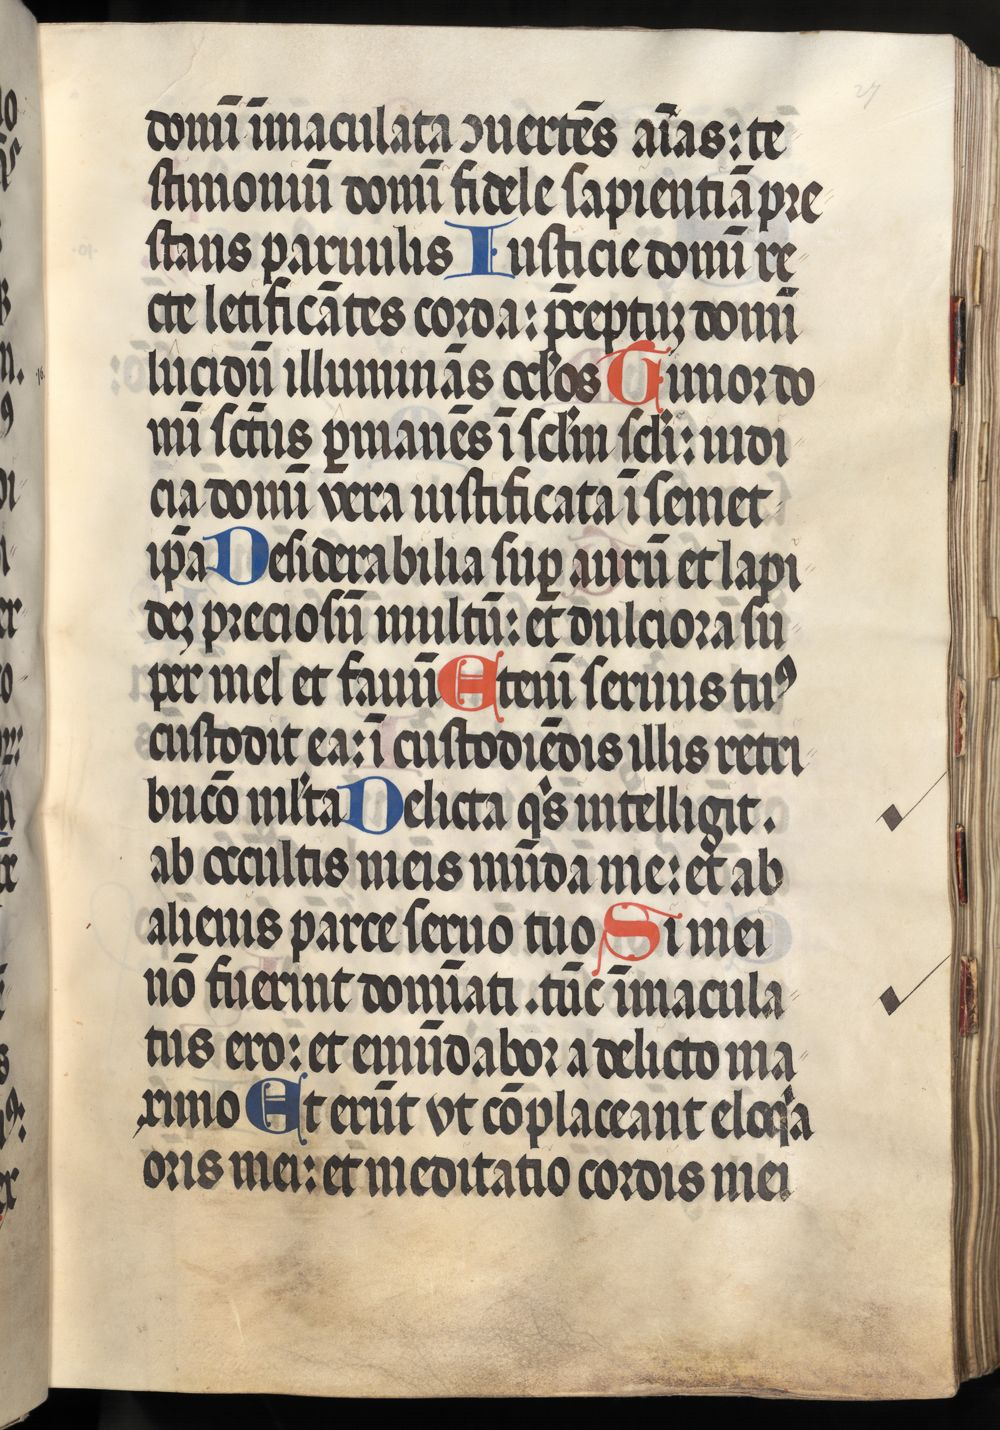 27
domī īmaculata ↄuertēs aīas: te
stimoniū domī fidele sapientiā pre
stans paruulis Iusticie domī re
cte letificātes corda: p̄ceptuꝫ domī
lucidū illuminās oc̄los Timor do
mī sct̄us ꝑmanēs ī scl̄m scl̄i: iudi
cia domī vera iustificata ī semet
ip̄a Desiderabilia suꝑ aurū et lapi
deꝫ preciosū multū: et dulciora su
per mel et fauū Etenī seruus tuꝰ
custodit ea: ī custodiēdis illis retri
bucō ml̄ta Delicta qͥs intelligit.
ab occultis meis mūda me: et ab
alienis parce seruo tuo Si mei
nō fuerint domīati. tūc īmacula
tus ero: et emūdabor a delicto ma
ximo Et erūt vt cōplaceant eloq̄a
oris mei: et meditatio cordis mei